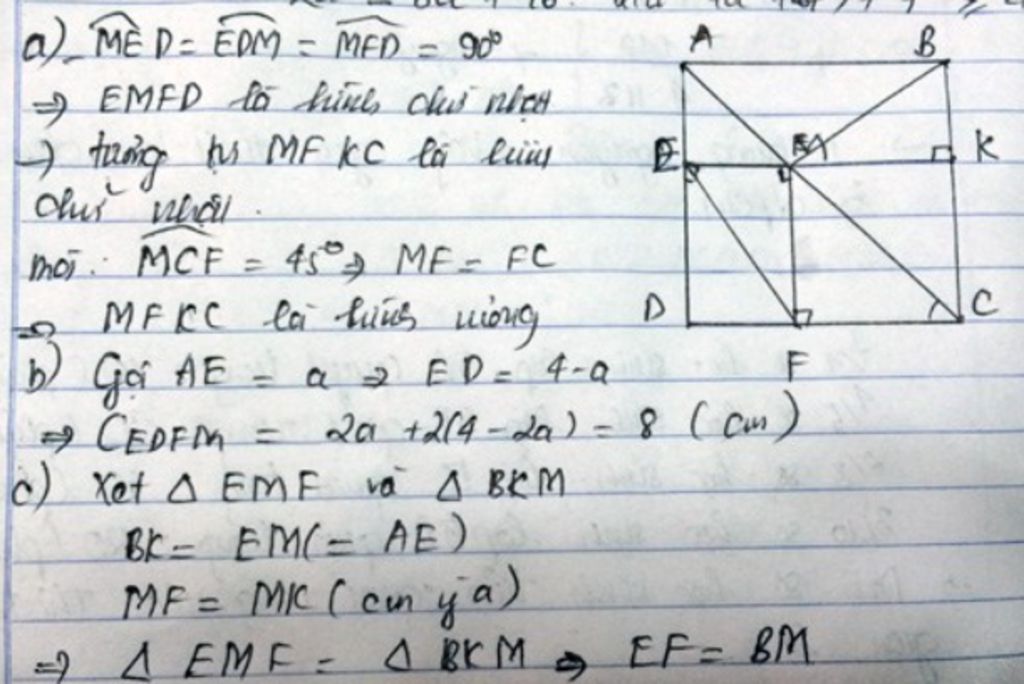 a) M̂ED = ÊDM = M̂FD = 90°
⇒ EMFD là hình chữ nhật
→ tương tự MFKC là hình
chữ nhật.
mới: M̂CF = 45° ⇒ MF = FC
⇒ MFKC là hình vuông
b) Gọi AE = a ⇒ ED = 4-a
⇒ CEDFM = 2a + 2(4 - 2a) = 8 (cm)
c) Xét Δ EMF và Δ BKM
BK = EM (= AE)
MF = MK (cm ý a)
⇒ Δ EMF = Δ BKM ⇒ EF = BM
A B
E M K
D C
F